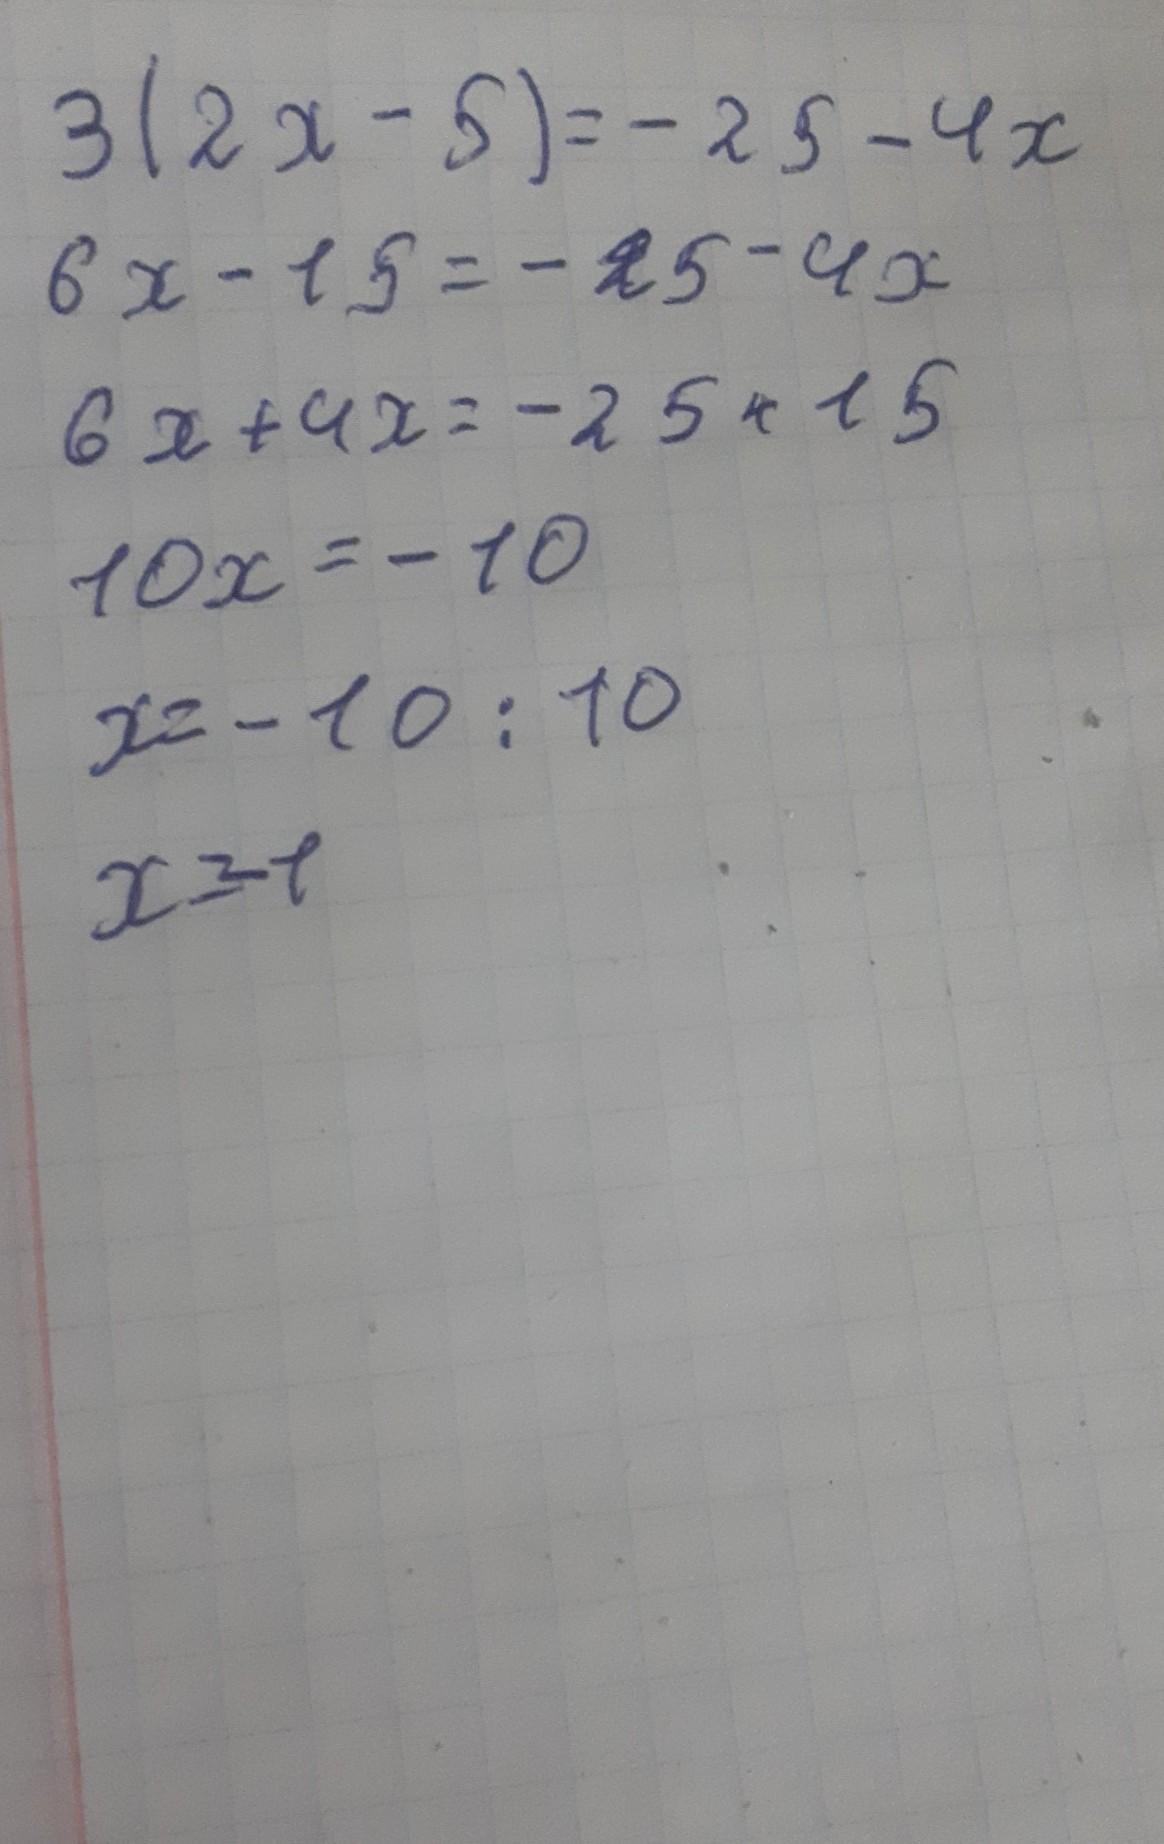 3(2x-5)=-25-4x
6x-15=-25-4x
6x+4x=-25+15
10x=-10
x=-10:10
x=-1